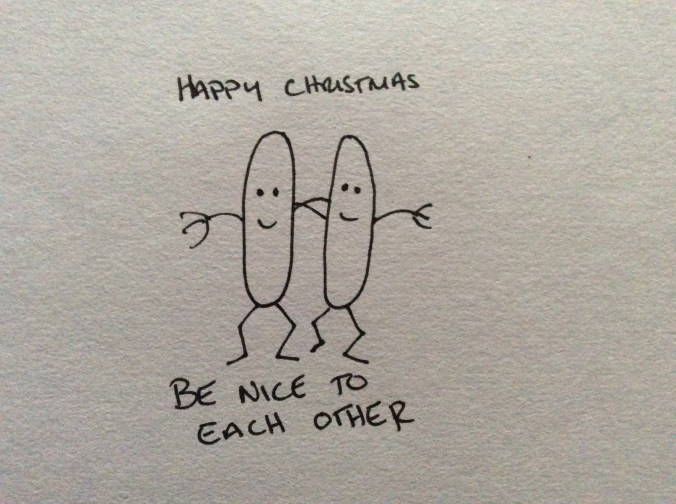 HAPPY CHRISTMAS
BE NICE TO
EACH OTHER